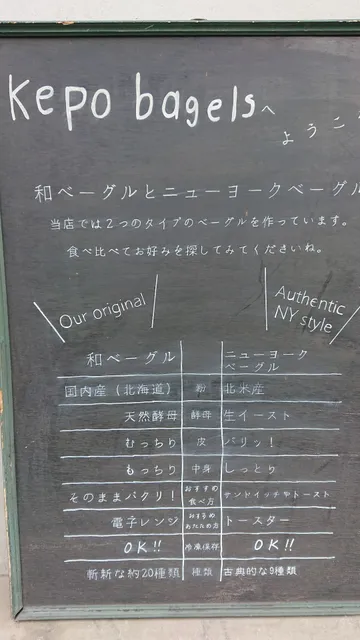 Kepo bagelsへ
ようこそ
和ベーグルとニューヨークベーグル
当店では2つのタイプのベーグルを作っています。
食べ比べてお好みを探してみてくださいね。
Our original
Authentic
NY style
和ベーグル ニューヨーク
ベーグル
国内産（北海道） 粉 北米産
天然酵母 酵母 生イースト
むっちり 皮 パリッ！
もっちり 中身 しっとり
そのままパクリ！ おすすめ
食べ方 サンドイッチやトースト
電子レンジ おすすめ
あたため方 トースター
OK!! 冷凍保存 OK!!
斬新な約20種類 種類 古典的な9種類